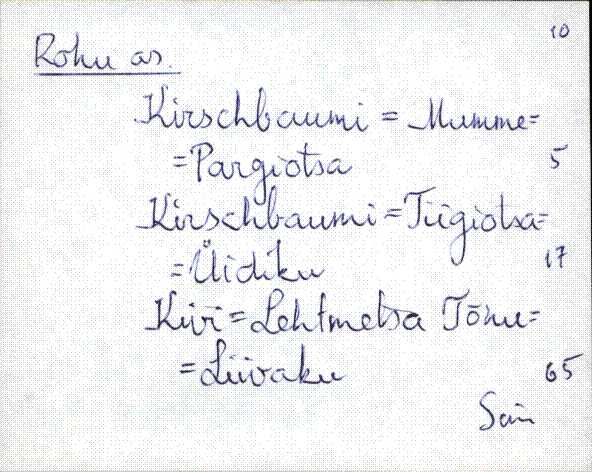 10
Rohu as.
Kirschbaumi = Mumme=
=Pargiotsa 5
Kirschbaumi = Tiigiotsa=
=Üidiku 17
Kivi = Lehtmetsa Tõnu=
=Liivaku 65